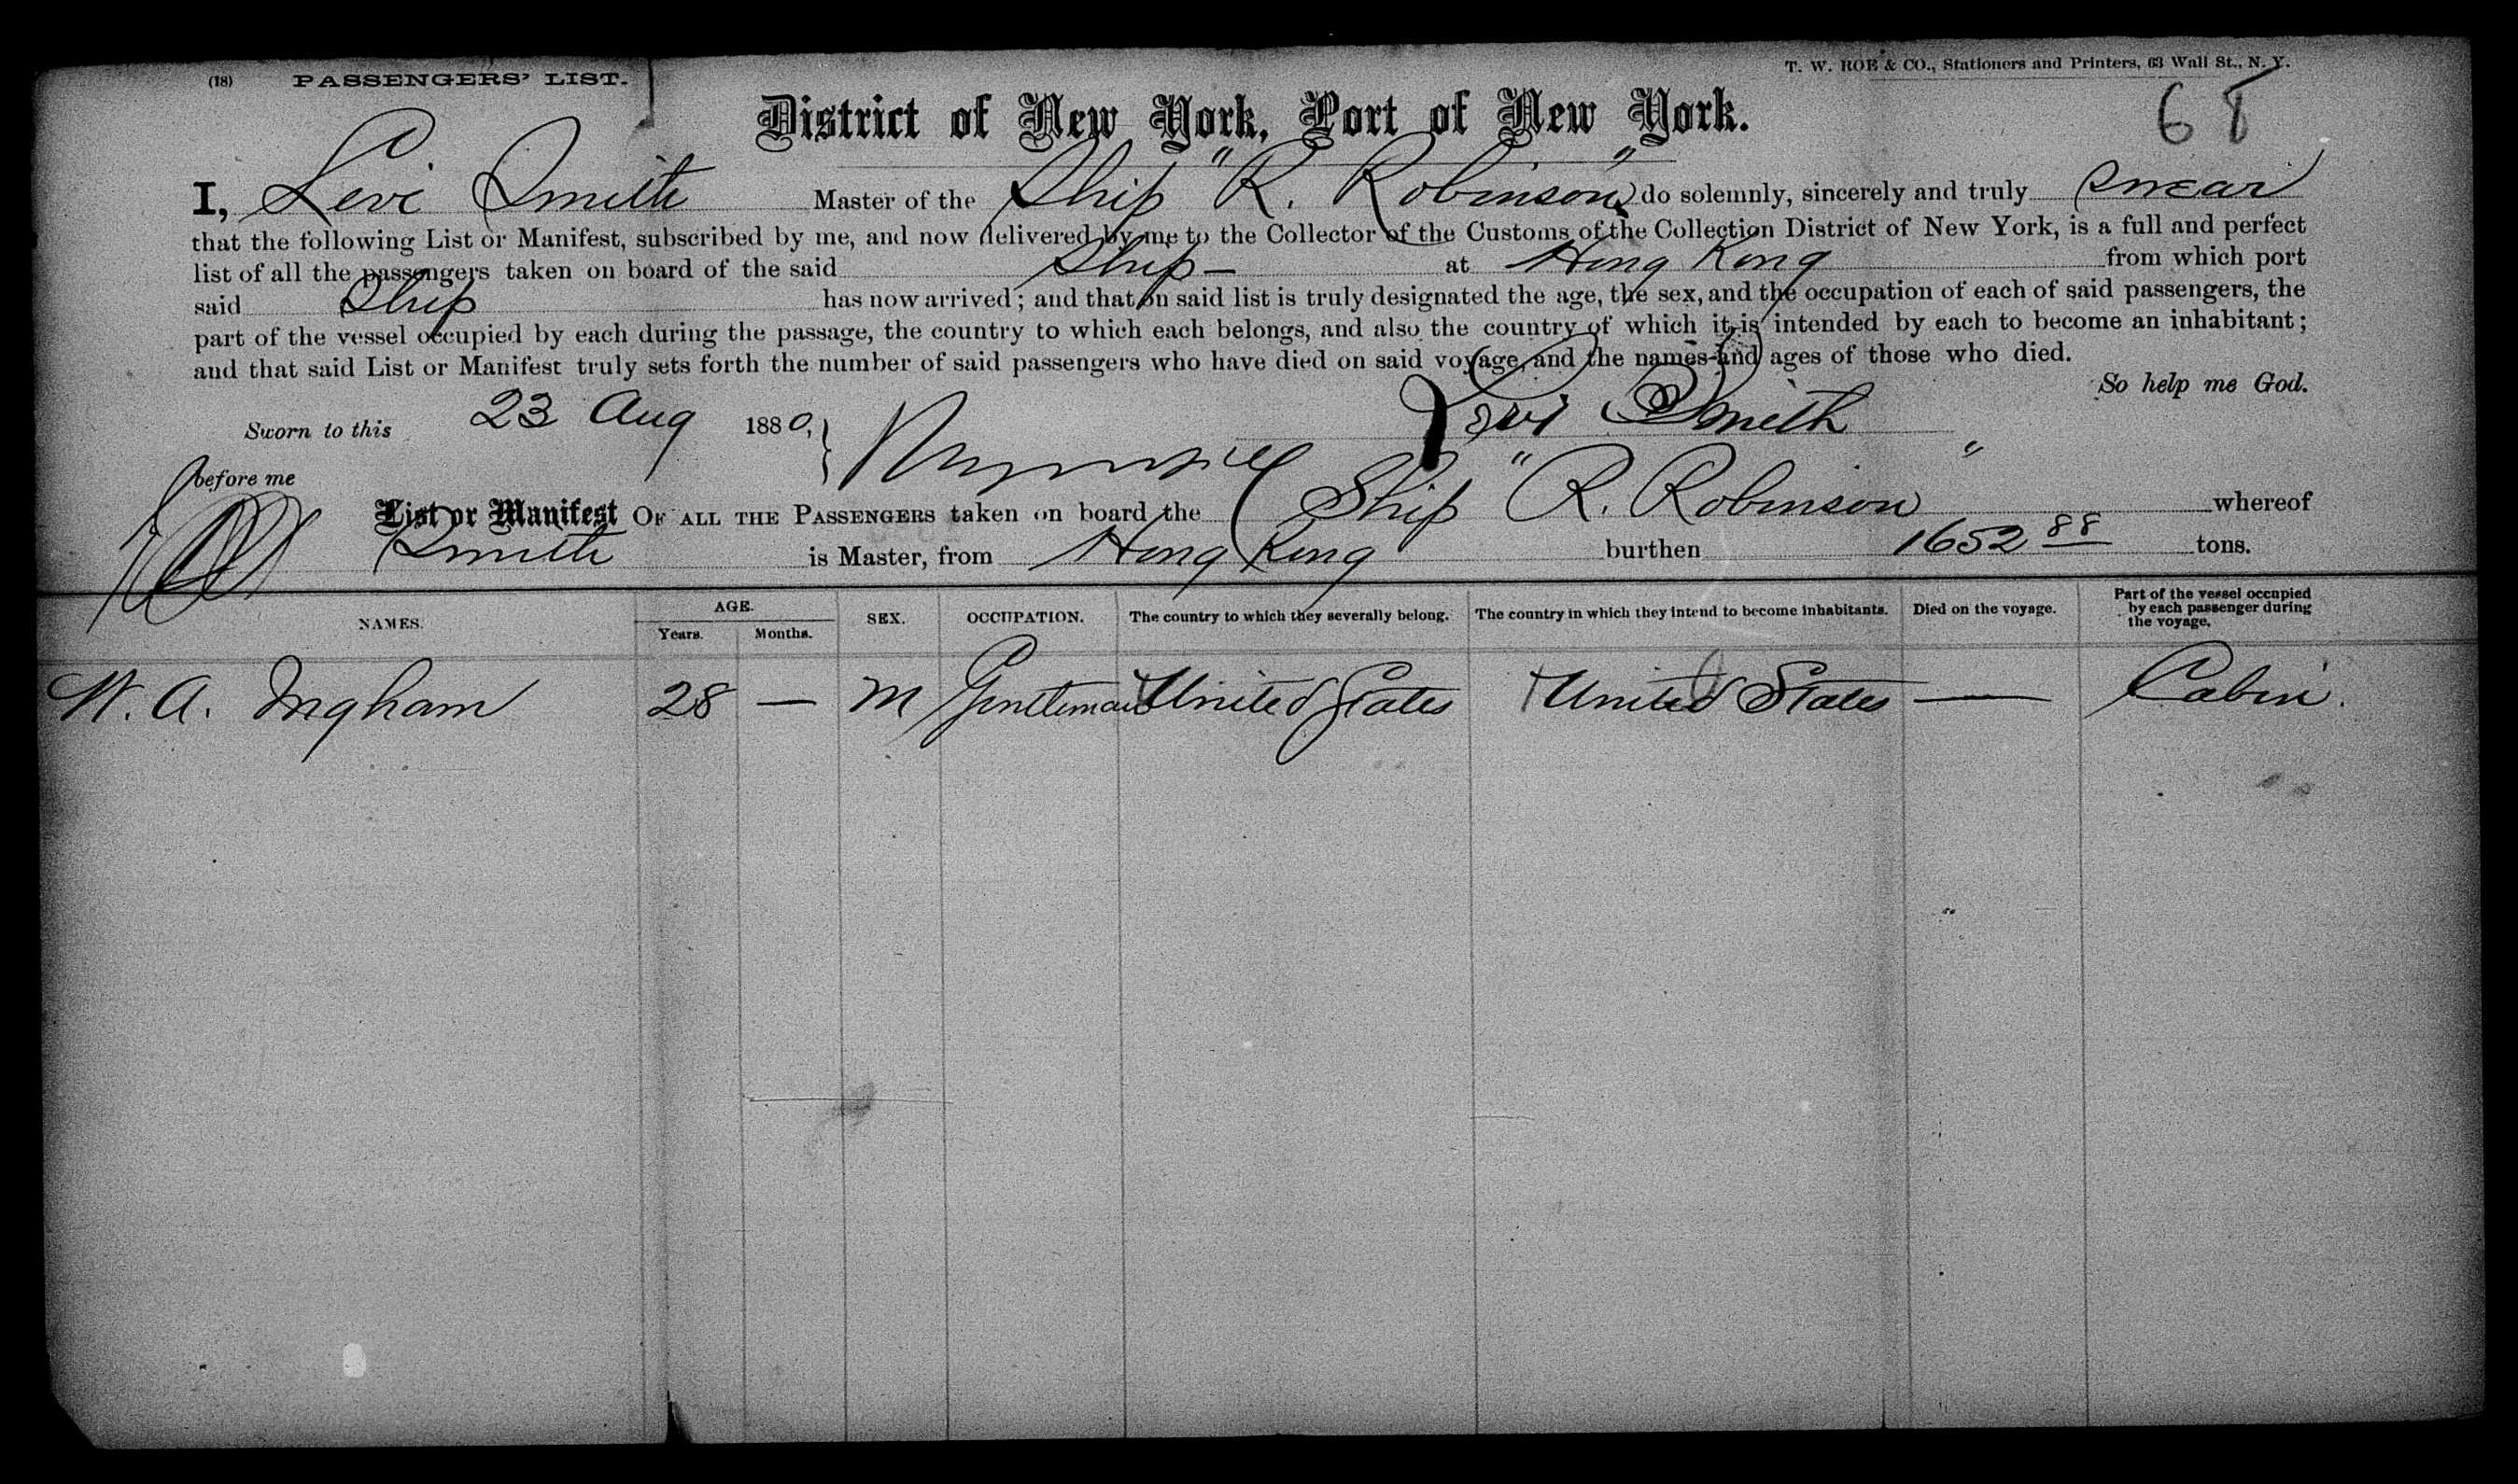 (18) PASSENGERS' LIST.
T. W. ROE & CO., Stationers and Printers, 63 Wall St., N. Y.
68
District of New York, Port of New York.
I, Levi Smith Master of the Ship "R. Robinson" do solemnly, sincerely and truly swear
that the following List or Manifest, subscribed by me, and now delivered by me to the Collector of the Customs of the Collection District of New York, is a full and perfect
list of all the passengers taken on board of the said Ship — at Hong Kong from which port
said Ship has now arrived; and that on said list is truly designated the age, the sex, and the occupation of each of said passengers, the
part of the vessel occupied by each during the passage, the country to which each belongs, and also the country of which it is intended by each to become an inhabitant;
and that said List or Manifest truly sets forth the number of said passengers who have died on said voyage, and the names and ages of those who died.
So help me God.
Sworn to this 23 Aug 1880, Levi Smith
before me
List or Manifest OF ALL THE PASSENGERS taken on board the Ship "R. Robinson" whereof
Smith is Master, from Hong Kong burthen 1652 88 tons.
NAMES. AGE. Years. Months. SEX. OCCUPATION. The country to which they severally belong. The country in which they intend to become inhabitants. Died on the voyage. Part of the vessel occupied by each passenger during the voyage.
W. A. Ingham 28 — M Gentleman United States United States — Cabin.